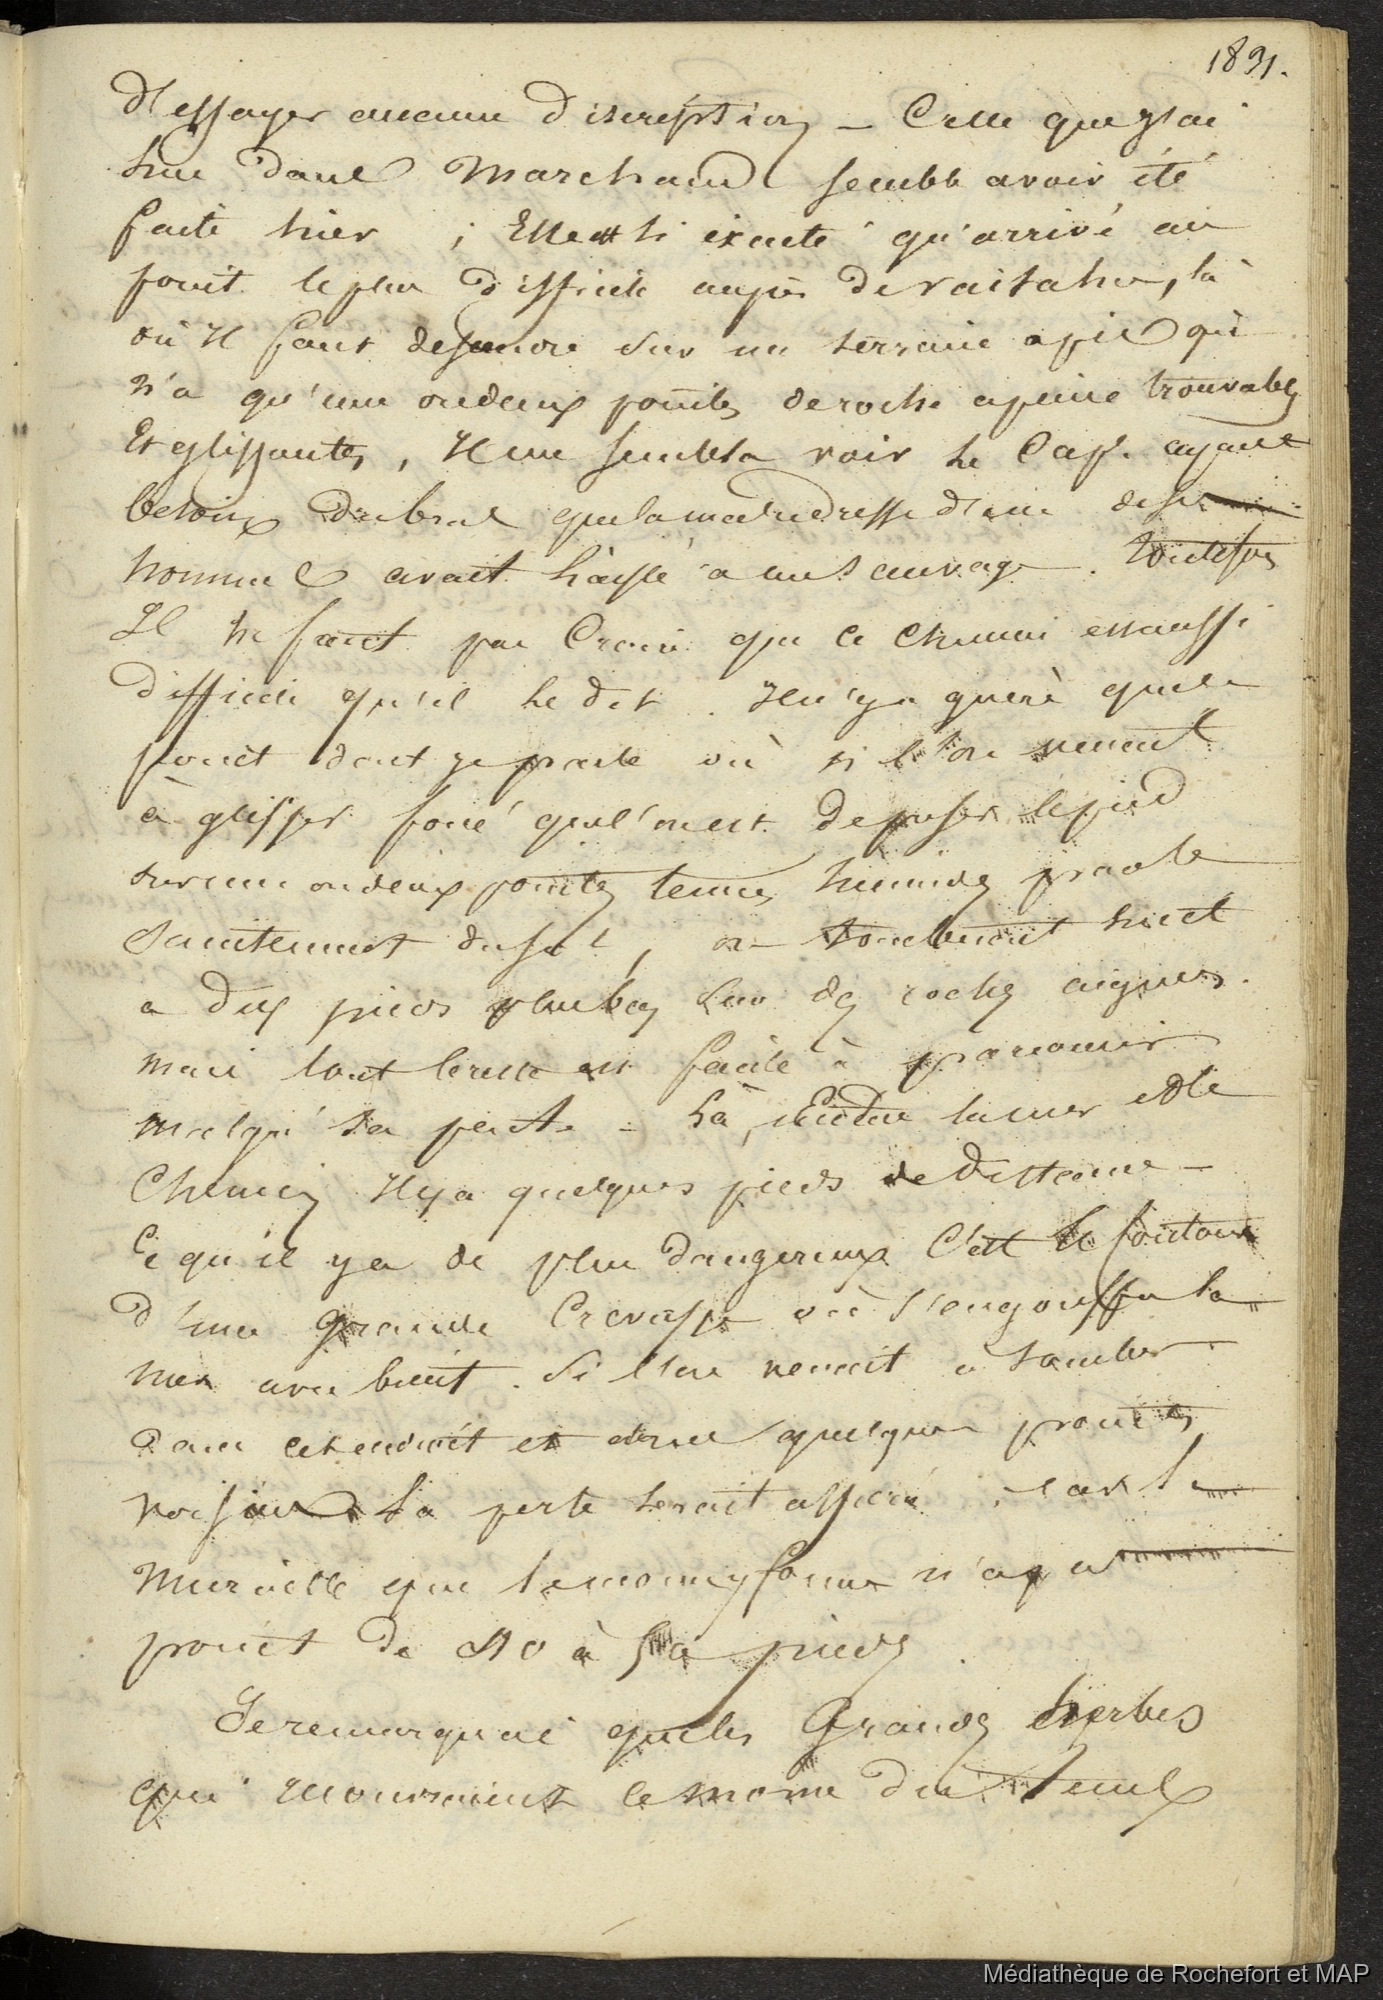 1891.
d'essayer aucune discréption — Celle que j'ai
lue dans Marchand semble avoir été
faite hier ; Elle est si exacte qu'arrivé au
point le plus difficile auprès de vaitahu, là
où Il faut desendre sur un terrain apic qui
n'a qu'une ou deux pointes de roche apeine trouvables
Et glissantes, Il me sembla voir le Cap. ayant
besoin du bras que la maladresse d'un de ses
hommes avait laissé a un sauvage. Toutefois
Il ne faut pas Croire que ce chemin est aussi
difficile qu'il le dit. Il n'y a guère que le
point dont je parle où si l'on venait
à glisser forcé que l'on est de poser le pied
sur une ou deux pointes tenues humides par le
suintement du sol, on tomberait huit
a dix pieds plus bas sur des roches aigues.
mais tout le reste est facile à parcourir
malgré sa pente — Là, entre la mer et le
Chemin Il y a quelques pieds de distance —
Ce qu'il y a de plus dangereux C'est le contour
d'une grande Crevasse où s'engouffre la
mer avec bruit. Si l'on venait a tomber
dans cet endroit et dans quelques points
voisins la perte serait assurée ; car la
muraille que le morne forme n'a pas
point de 40 à 50 pieds
Je remarquai que les Grandes herbes
qui couvraient le morne du Sud
Médiathèque de Rochefort et MAP